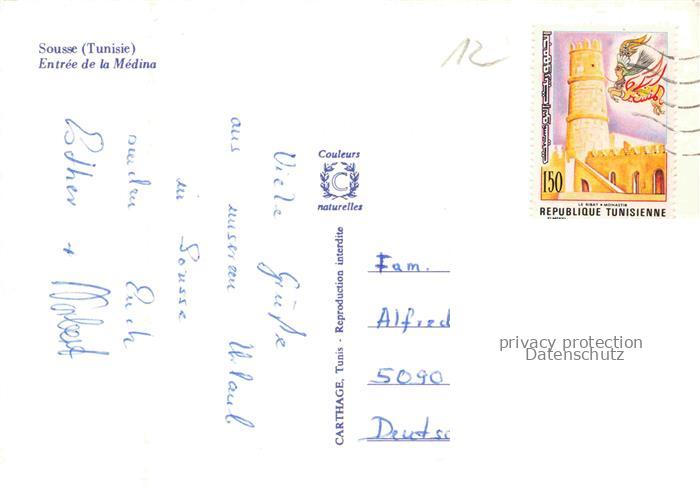 Sousse (Tunisie)
Entrée de la Médina
12
Viele Grüße
aus unserem Urlaub
in Sousse
senden Euch
Esther + Norbert
Couleurs
C
naturelles
CARTHAGE, Tunis - Reproduction interdite
150
LE RIBAT • MONASTIR
REPUBLIQUE TUNISIENNE
Fam.
Alfred
5090
Deutsc
privacy protection
Datenschutz